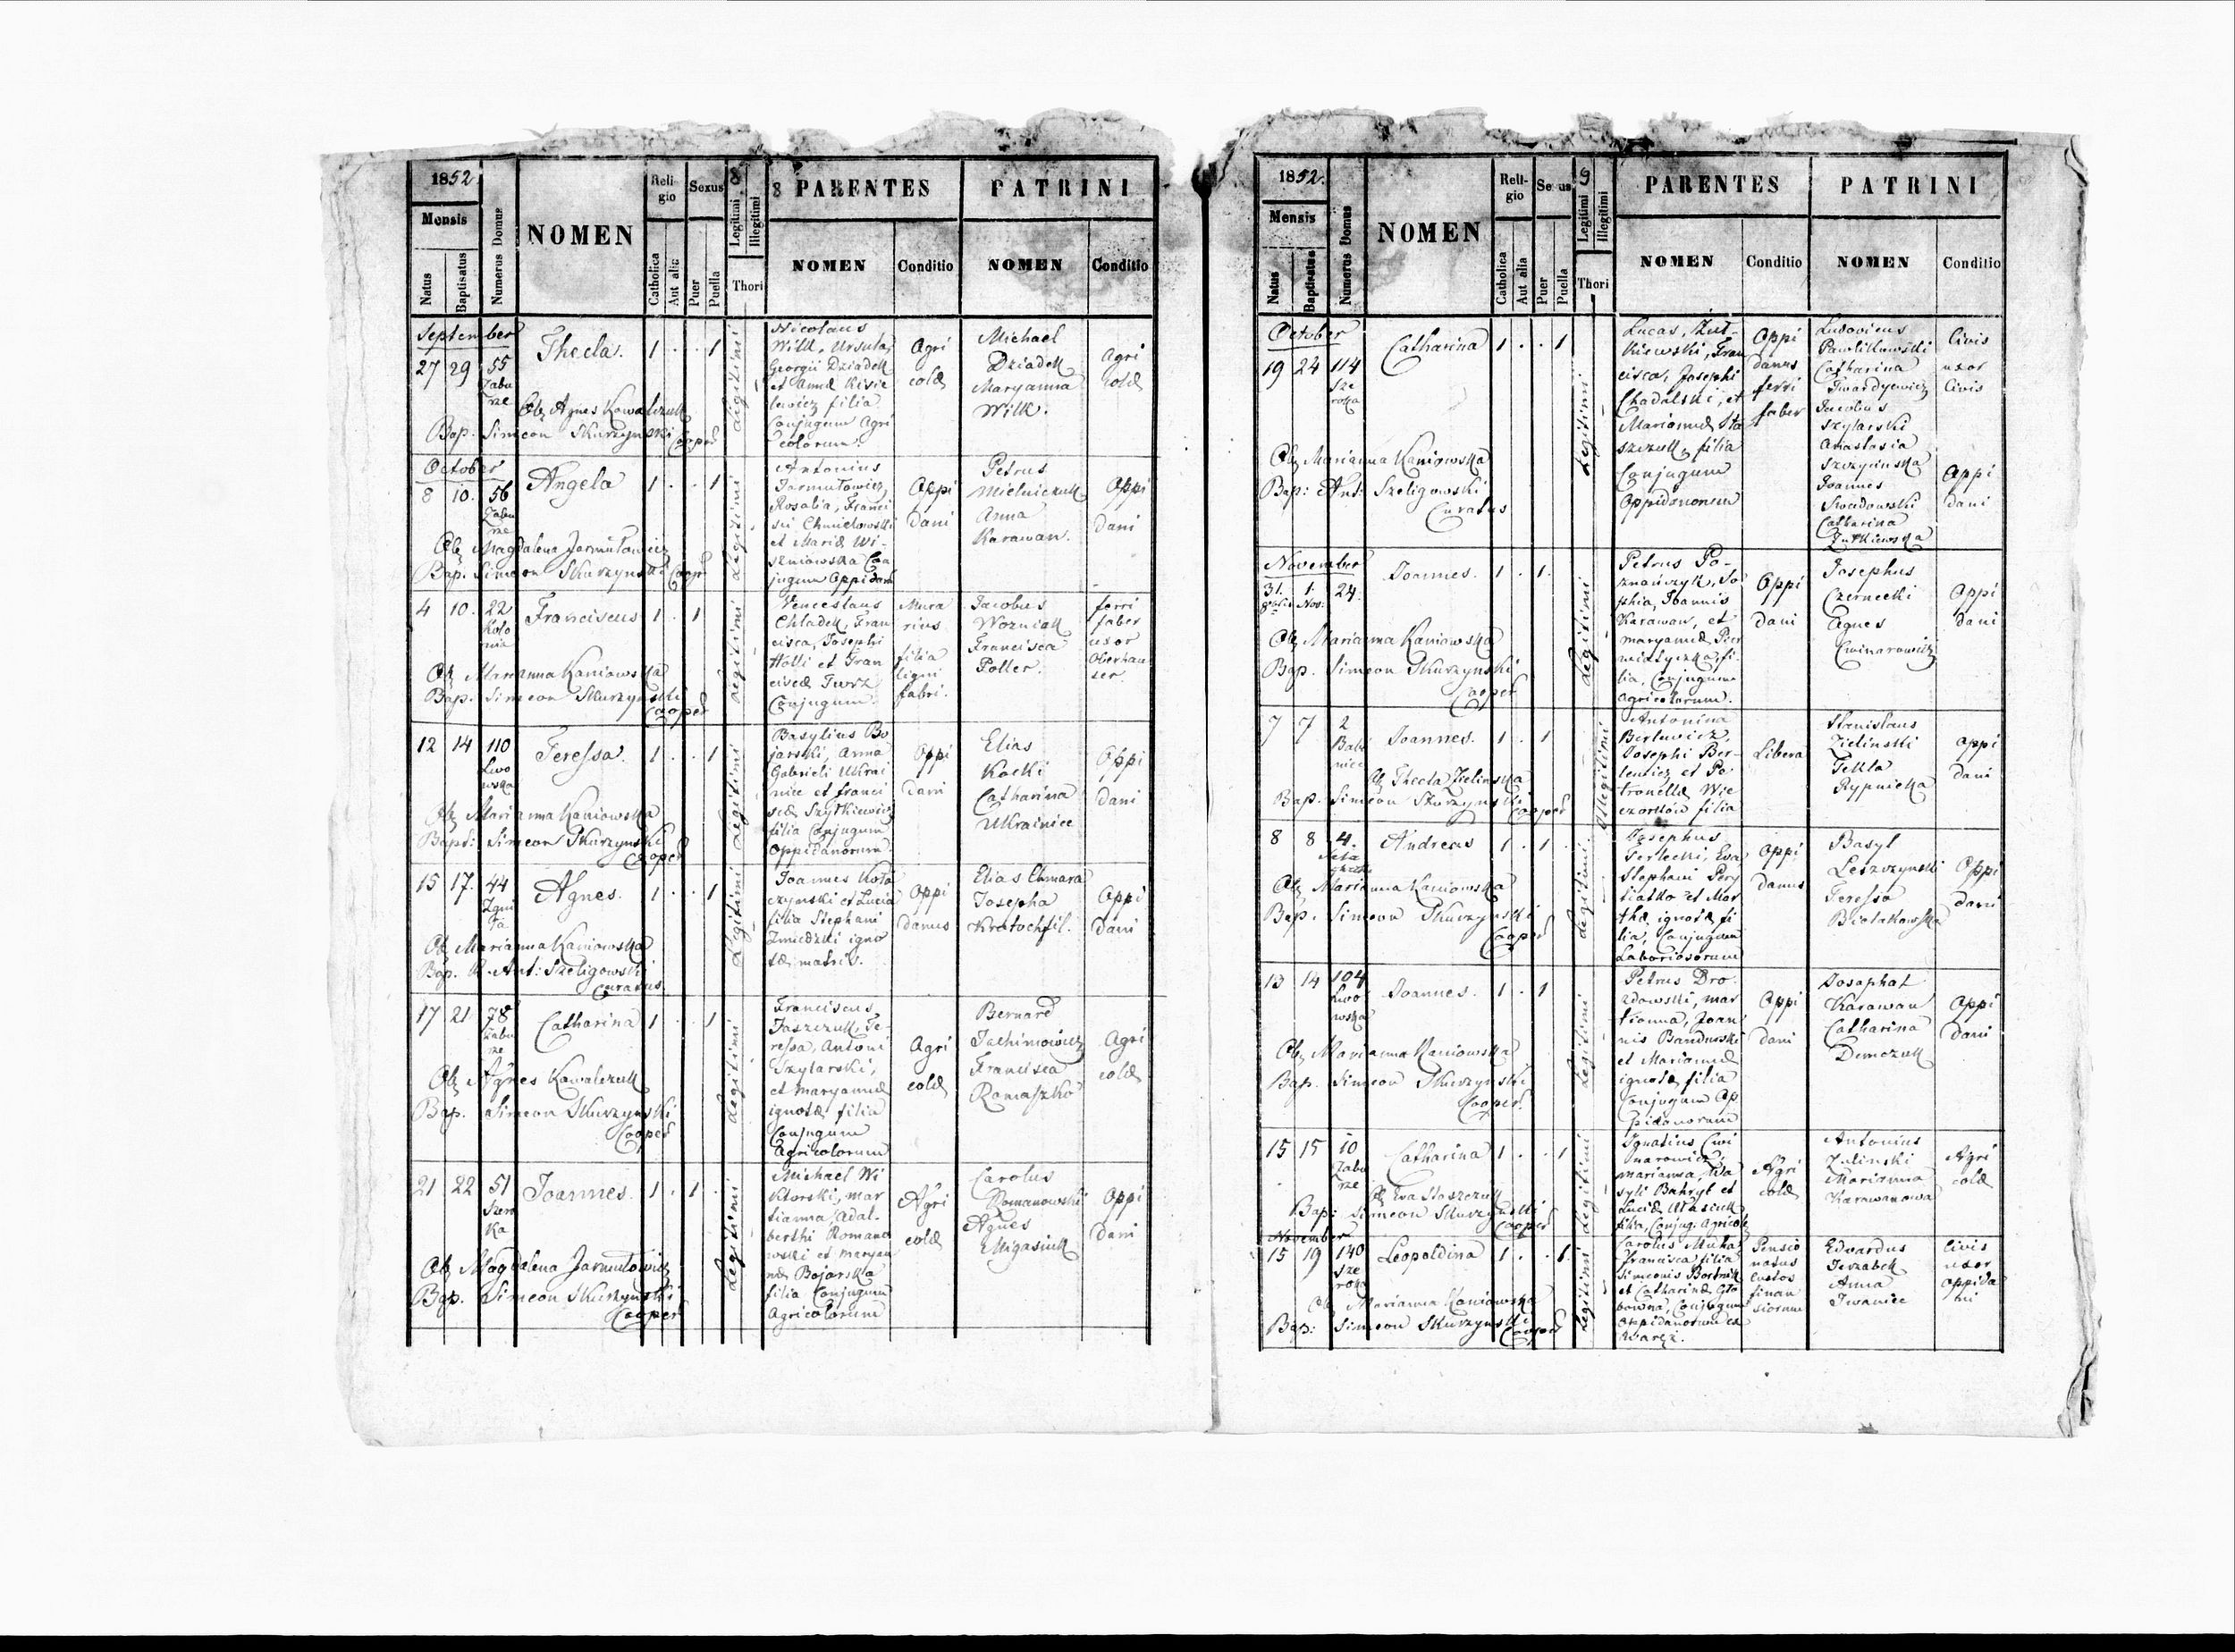 1852.
Mensis
Natus
Baptisatus
Numerus Domus
NOMEN
Religio
Catholica
Aut alia
Sexus
Puer
Puella
8
Legitimi
Illegitimi
Thori
8 PARENTES
NOMEN
Conditio
PATRINI
NOMEN
Conditio
September
27 29 55
Zabu
rze
Thecla.
1 . . 1
Legitimi
Nicolaus
Wilk, Ursula,
Georgii Dziadek
et Annæ
filia
Conjugum Agri
colarum.
Agri
colæ
Michael
Dziadek
Maryanna
Wilk.
Agri
colæ
Ob. Agnes Kowalczuk
Bap. Simeon Skurzynski
Cooper
October
8 10. 56
Zabu
rze
Angela
1 . . 1
Legitimi
Antonius
Jarmutowicz,
Rosalia, Franci
sci Chmielowski
et Mariæ Wi-
szniowska Con
jugum Oppidan
Oppi
dani
Petrus
Mielniczuk
Anna
Karawan.
Oppi
dani
Ob. Magdalena Jarmutowicz
Bap. Simeon Skurzynski Cooper
4 10. 22
Kolo
nia
Franciscus
1 . 1
Legitimi
Venceslaus
Chladek, Fran
cisca, Josephi
Holli et Fran
ciscæ Turz
Conjugum.
Mura
rius
filia
ligni
fabri.
Jacobus
Wozniak
Francisca
Poller.
ferri
faber
uxor
Oberhau
ser.
Ob. Marianna Kaniowska
Bap. Simeon Skurzynski
Cooper
12 14 110
Lwo
wska
Teressa.
1 . . 1
Legitimi
Basylius Bo
jarski, Anna
Gabrieli Ukrai
nice et Franci
scæ Szytkiewicz
filia Conjugum
Oppidanorum
Oppi
dani
Elias
Kocki
Catharina
Ukrainice
Oppi
dani
Ob. Marianna Kaniowska
Bapt: Simeon Skurzynski
Cooper
15 17. 44
Agnes.
1 . . 1
Legitimi
Joannes Kola
czynski et Lucia
filia Stephani
Zmiedzki igno
tæ matris.
Oppi
danus
Elias Chmara
Josepha
Kratochfil.
Oppi
dani
Ob. Marianna Kaniowska
Bap. R. Ant: Szeligowski
Curatus
17 21 78
Zabu
rze
Catharina
1 . . 1
Legitimi
Franciscus
Jaszczuk, Te-
ressa, Antoni
Szylarski,
et Maryannæ
ignotæ filia
Conjugum
Agricolorum
Agri
colæ
Bernard
Jachimowicz
Francisca
Romaszko
Agri
colæ
Ob. Agnes Kowalczuk
Bap. Simeon Skurzynski
Cooper
21 22 51
Szero
ka
Joannes.
1 . 1 .
Legitimi
Michael Wi
ktorski, Mar
tianna, Adal-
berthi Romano
wski et Maryan
næ Bojarska
filia Conjugum
Agricolorum
Agri
colæ
Carolus
Romanowski
Agnes
Migasiuk
Oppi
dani
Ob. Magdalena Jarmutowicz
Bap. Simeon Skurzynski
Cooper
1852.
Mensis
Natus
Baptisatus
Numerus Domus
NOMEN
Religio
Catholica
Aut alia
Sexus
Puer
Puella
9
Legitimi
Illegitimi
Thori
PARENTES
NOMEN
Conditio
PATRINI
NOMEN
Conditio
October
19 24 114
Sze
roka
Catharina
1 . . 1
Legitimi
Lucas, Żut-
kiewski, Fran
cisca, Josephi
Chadalski, et
Mariannæ Sta
szczuk, filia
Conjugum
Oppidanorum
Oppi
danus
ferri
faber
Ludovicus
Pawlikowski
Catharina
Twardyewicz
Jacobus
Szylarski
Anastasia
Szczycinska
Joannes
Swadowski
Catharina
Zutkiewska
Civis
uxor
Civis
Oppi
dani
Ob. Marianna Kaniowska
Bap: Ant: Szeligowski
Curatus
November
31. 1. 24.
8bris Nov:
Joannes.
1 . 1.
Legitimi
Petrus Po-
znańczyk, So
phia, Joannis
Karawan, et
Maryannæ Pier
fi-
lia, Conjugum
Agricolarum.
Oppi
dani
Josephus
Czernecki
Agnes
Cwinarowicz
Oppi
dani
Ob. Marianna Kaniowska
Bap. Simeon Skurzynski
Cooper
7 7 2
Babi
nice
Joannes.
1 . 1
Illegitimi
Antonina
Berlewicz,
Josephi Ber-
lewicz et Pe
tronellæ Wie
czorków filia
Libera
Stanislaus
Zielinski
Tekla
Rypnicka
Oppi
dani
Ob. Thecla Zielinska
Bap. Simeon Skurzynski
Cooper
8 8 4.
Andreas
1 . 1 .
Legitimi
Josephus
Terlecki, Eva
Stephani Pery
tiatko et Mar
thæ ignotæ fi
lia, Conjugum
Laboriosorum
Oppi
danus
Basyl
Leszczynski
Teressa
Bialakowska
Oppi
dani
Ob. Marianna Kaniowska
Bap. Simeon Skurzynski
Cooper
13 14 104
Lwo
wska
Joannes.
1 . 1
Legitimi
Petrus Dro
zdowski, Mar
tianna, Joan
nis Bandurski
et Mariannæ
ignotæ filia
Conjugum Op
pidanorum
Oppi
dani
Josaphat
Karawan
Catharina
Demczuk
Oppi
dani
Ob. Marianna Kaniowska
Bap. Simeon Skurzynski
Cooper
15 15 10
Zabu
rze
Catharina
1 . . 1
Legitimi
Ignatius Cwi
narowicz,
Marianna, Wa
syli Bahryl et
Luciæ Wlasiuk
filia, Conjug. Agricolæ
Agri
colæ
Antonius
Zulinski
Marianna
Karawanowa
Agri
colæ
Ob. Eva Staszczuk
Bap: Simeon Skurzynski
Cooper
November
15 19 140
Sze
roka
Leopoldina
1 . . 1.
Legitimi
Carolus Muha
Francisca filia
Simeonis Bortnik
et Catharinæ Glo
bowna, Conjugum
Oppidanorum ex
Warez.
Pensio
natus
custos
finan
siorum
Edvardus
Jerzabek
Anna
Iwanice
Civis
uxor
oppida
ni
Ob. Marianna Kaniowska
Bap: Simeon Skurzynski
Cooper